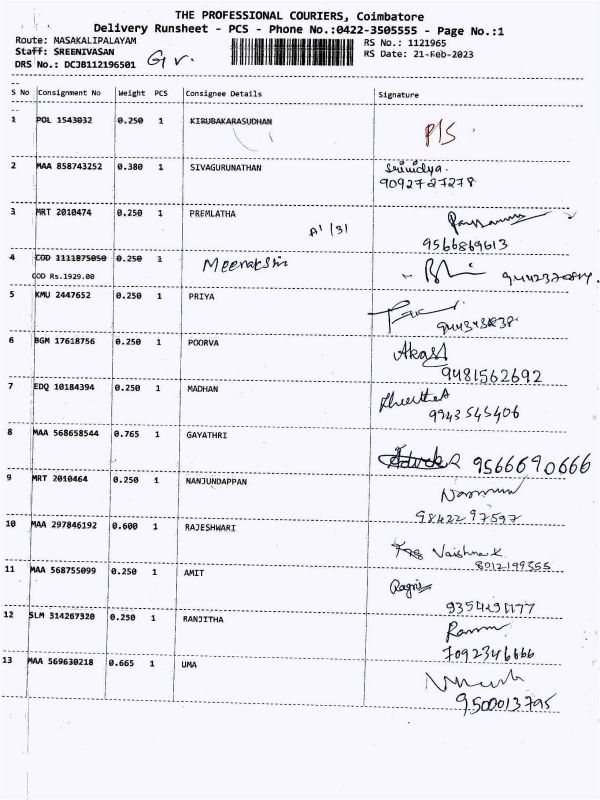 THE PROFESSIONAL COURIERS, Coimbatore
Delivery Runsheet - PCS - Phone No.:0422-3505555 - Page No.:1
Route: MASAKALIPALAYAM RS No.: 1121965
Staff: SREENIVASAN RS Date: 21-Feb-2023
DRS No.: DCJB112196501
S No Consignment No Weight PCS Consignee Details Signature
1 POL 1543032 0.250 1 KIRUBAKARASUDHAN P/S
2 MAA 858743252 0.380 1 SIVAGURUNATHAN Srividya.
9092727278
3 MRT 2010474 0.250 1 PREMLATHA
A1/31
9566869613
4 COD 1111875050 0.250 1 Meenakshi
COD Rs.1929.00
5 KMU 2447652 0.250 1 PRIYA
6 BGM 17618756 0.250 1 POORVA Akash
9481562692
7 EDQ 10184394 0.250 1 MADHAN
9943545406
8 MAA 568658544 0.765 1 GAYATHRI
9566690666
9 MRT 2010464 0.250 1 NANJUNDAPPAN
9842297597
10 MAA 297846192 0.600 1 RAJESHWARI Vaishna K
8012199555
11 MAA 568755099 0.250 1 AMIT Ragni
9354291177
12 SLM 314267320 0.250 1 RANJITHA
7092346666
13 MAA 569630218 0.665 1 UMA
9500013795